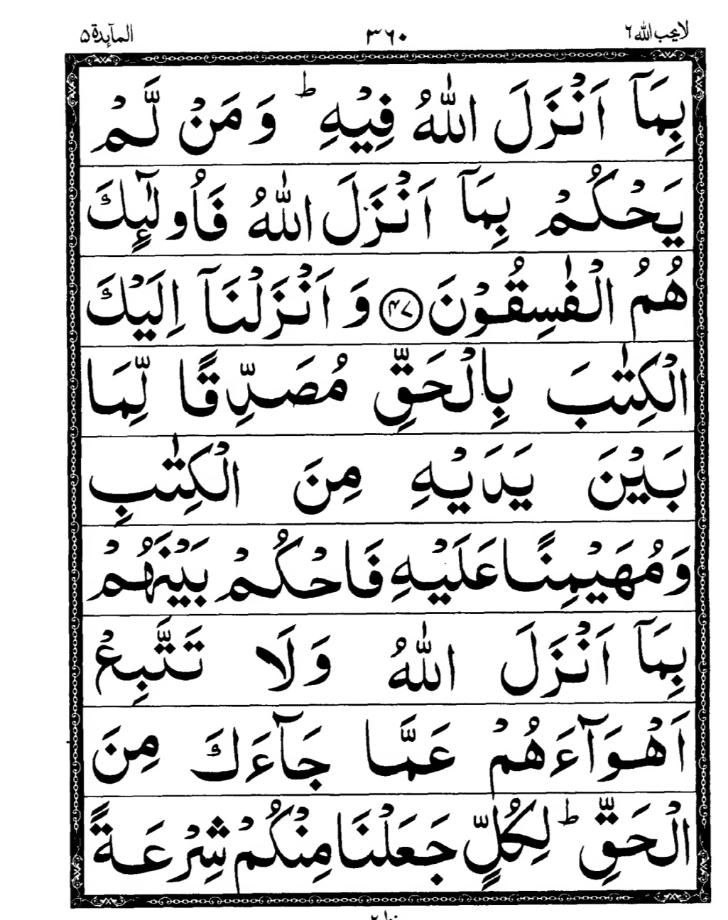 لایحب الله ٦ ٣٦٠ المآىدة ٥
بِمَآ اَنْزَلَ اللّٰهُ فِيْهِ ؕ وَ مَنْ لَّمْ
يَحْكُمْ بِمَآ اَنْزَلَ اللّٰهُ فَاُولٰٓئِكَ
هُمُ الْفٰسِقُوْنَ ﴿۴۷﴾ وَ اَنْزَلْنَآ اِلَيْكَ
الْكِتٰبَ بِالْحَقِّ مُصَدِّقًا لِّمَا
بَيْنَ يَدَيْهِ مِنَ الْكِتٰبِ
وَمُهَيْمِنًا عَلَيْهِ فَاحْكُمْ بَيْنَهُمْ
بِمَآ اَنْزَلَ اللّٰهُ وَلَا تَتَّبِعْ
اَهْوَآءَهُمْ عَمَّا جَآءَكَ مِنَ
الْحَقِّ ؕ لِكُلٍّ جَعَلْنَا مِنْكُمْ شِرْعَةً